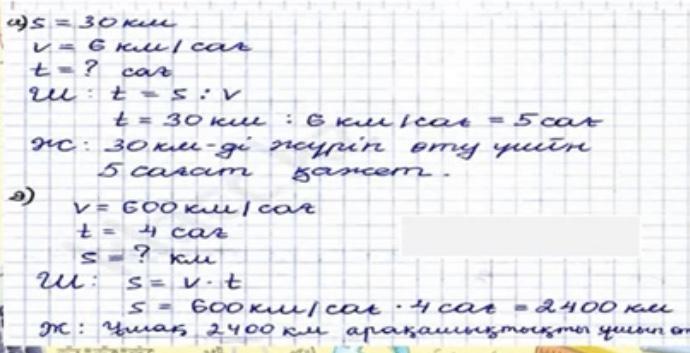 а) s = 30 км
v = 6 км/сағ
t = ? сағ
Ш: t = s : v
t = 30 км : 6 км/сағ = 5 сағ
Ж: 30 км-ді жүріп өту үшін
5 сағат қажет.
ә)
v = 600 км/сағ
t = 4 сағ
s = ? км
Ш: s = v · t
s = 600 км/сағ · 4 сағ = 2400 км
Ж: Ұшақ 2400 км арақашықтықты ұшып өт